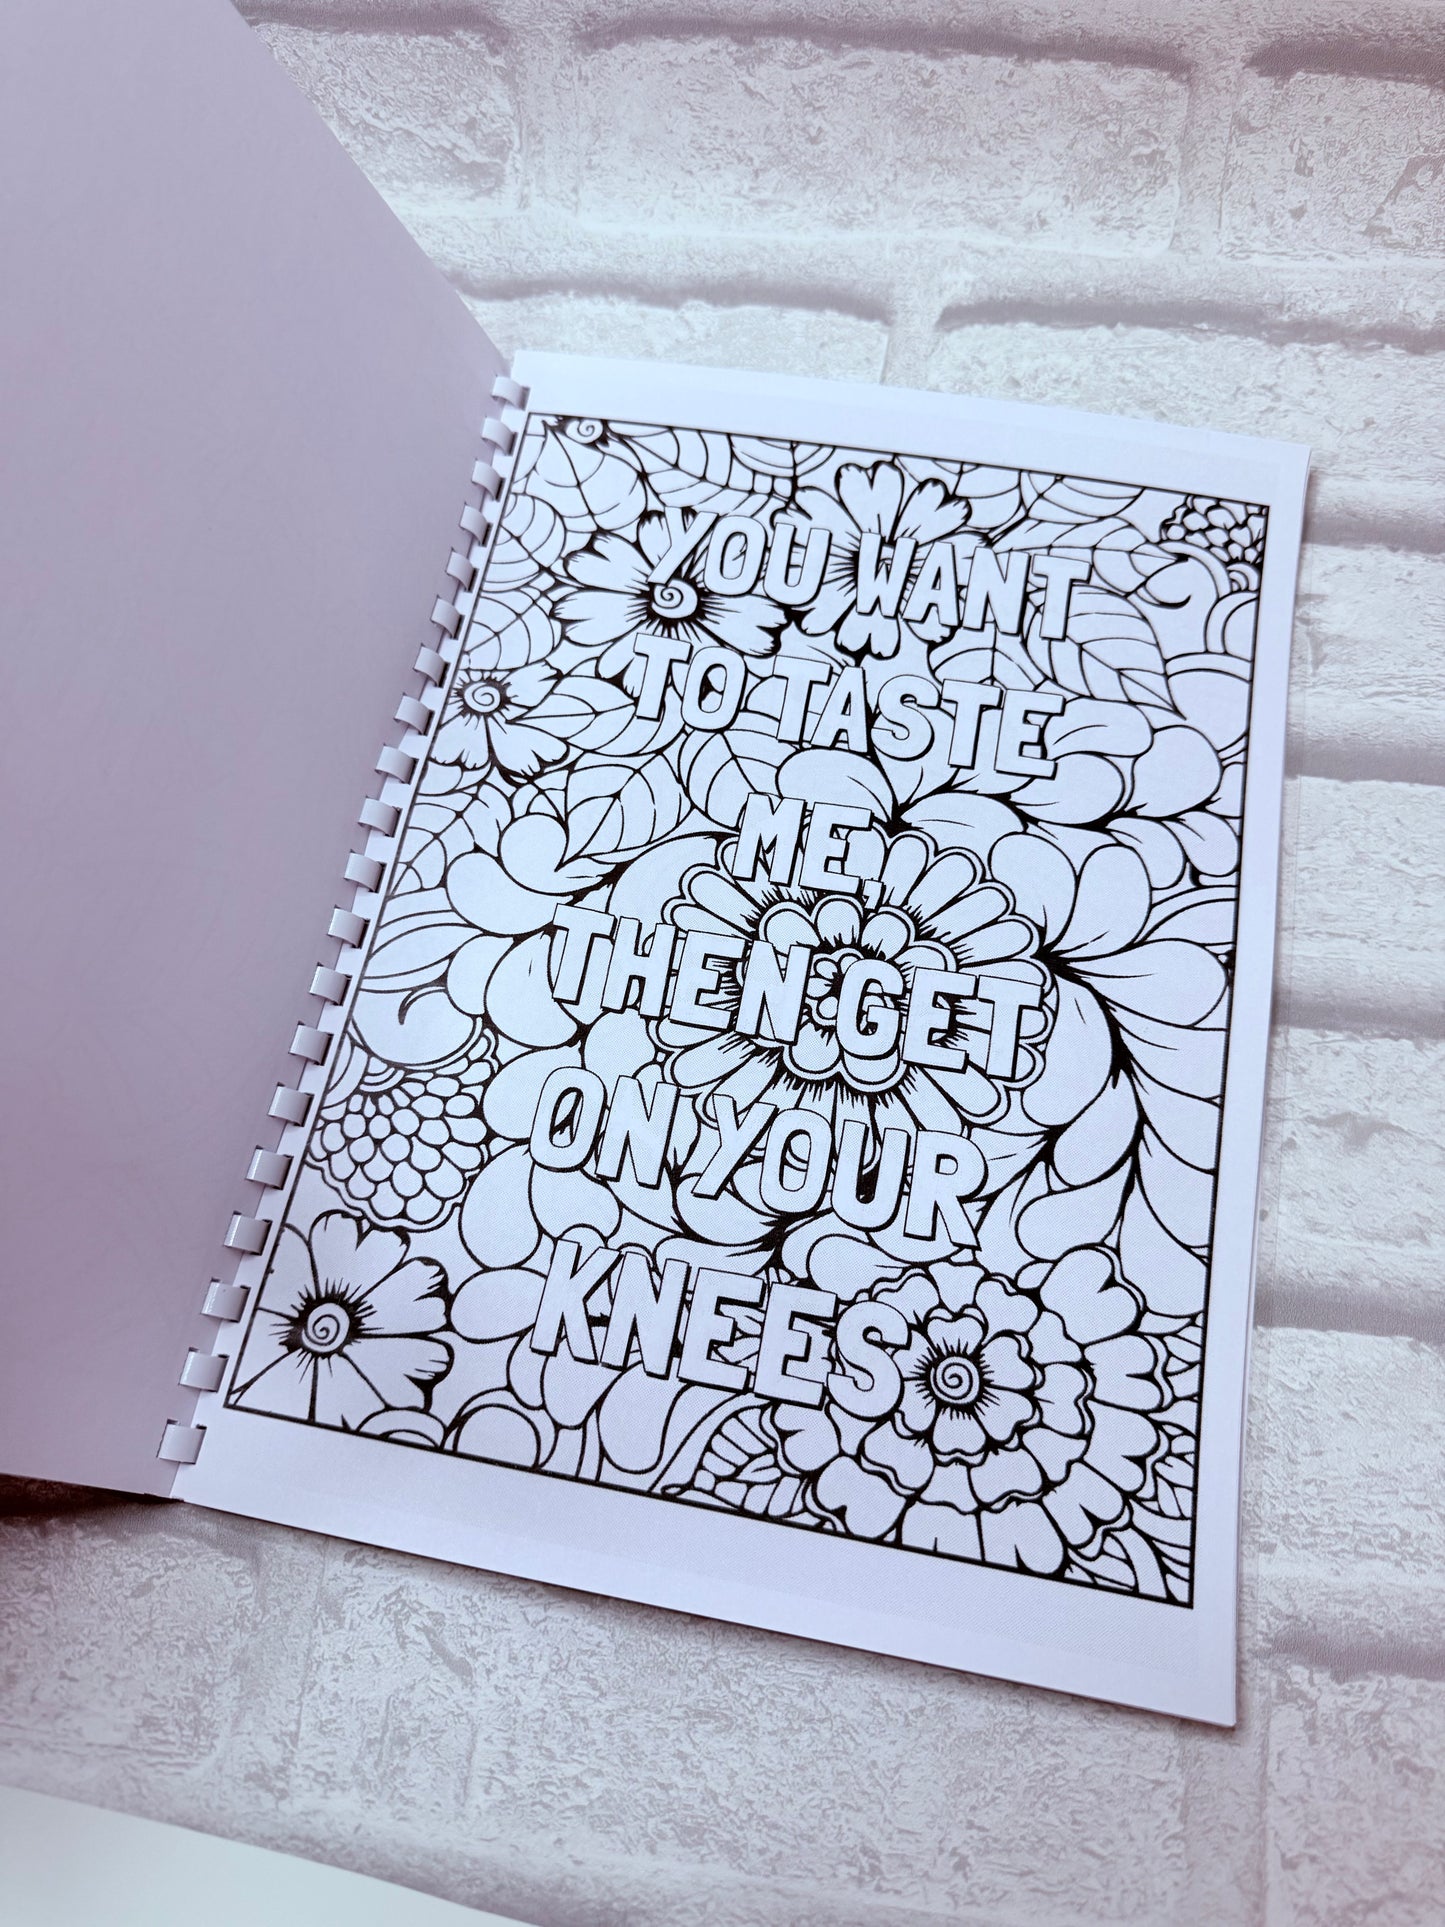 YOU WANT
TO TASTE
ME,
THEN GET
ON YOUR
KNEES